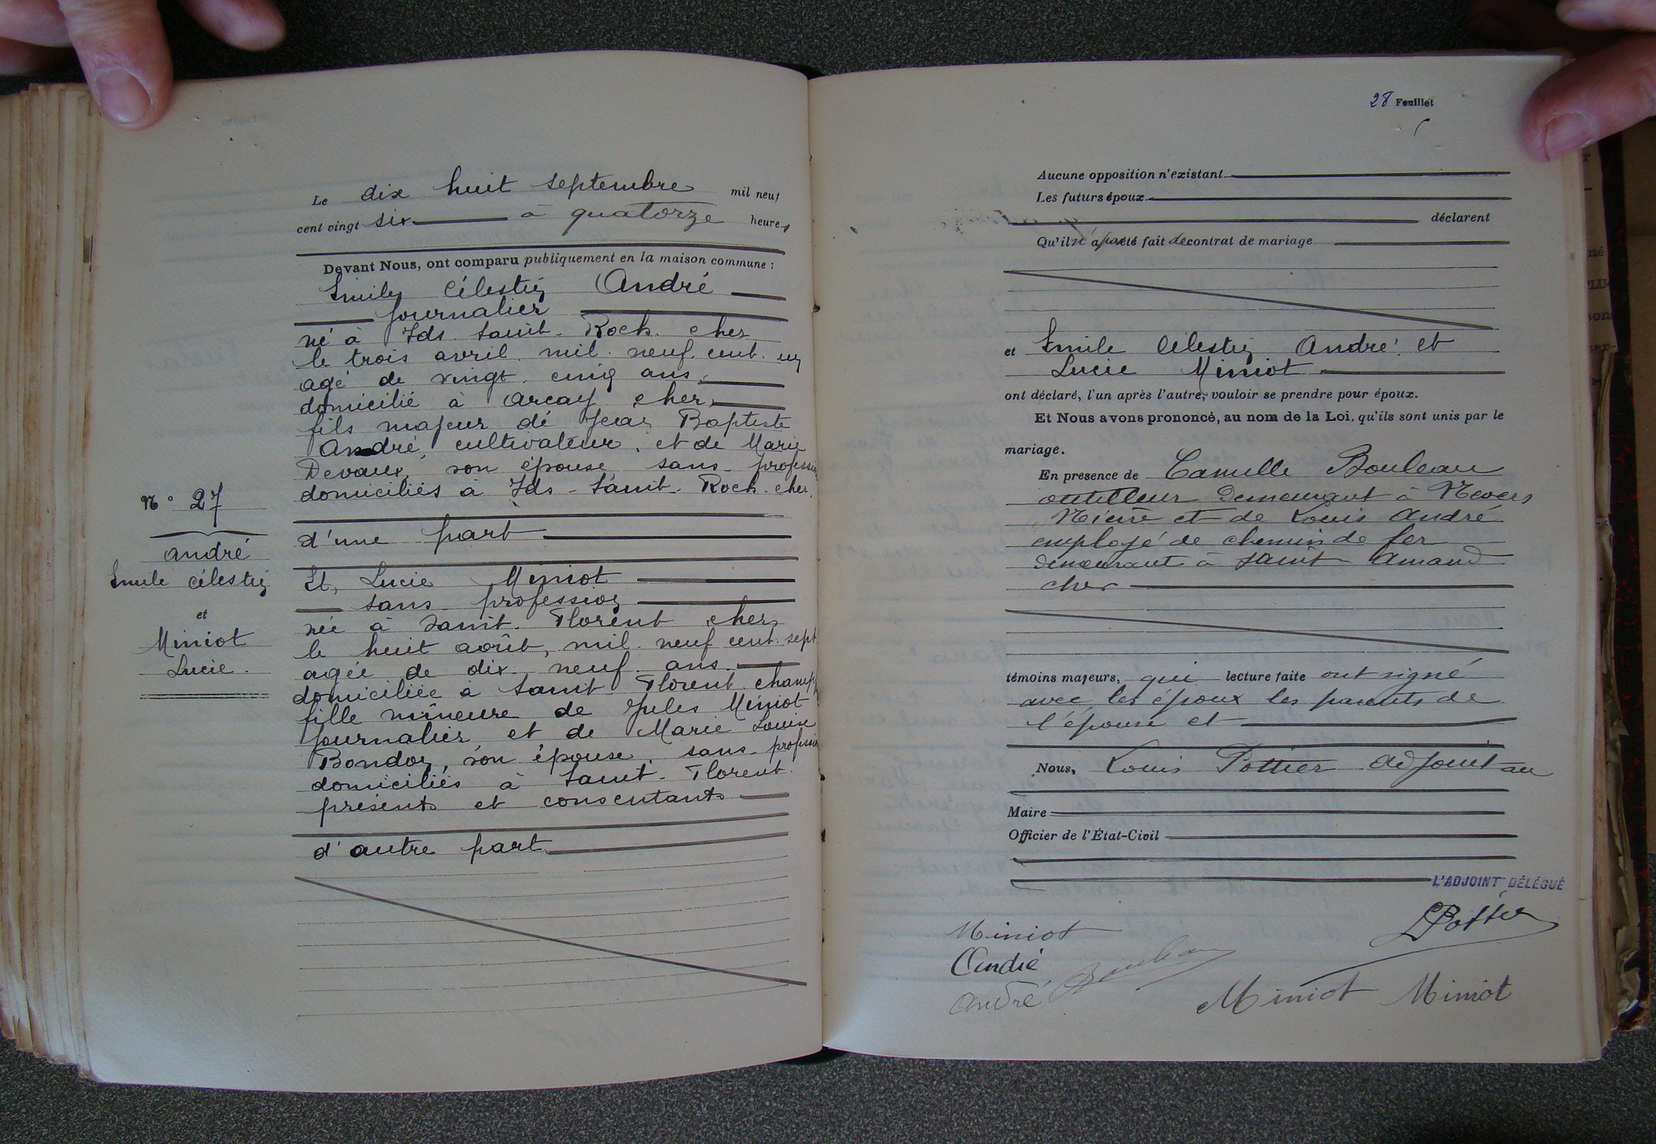 Le dix huit septembre mil neuf
cent vingt six à quatorze heures
Devant Nous, ont comparu publiquement en la maison commune :
Emile Célestin André
journalier
né à Ids Saint-Roch cher
le trois avril mil neuf cent un
agé de vingt cinq ans
domicilié à Arcay cher
fils majeur de Jean Baptiste
André, cultivateur, et de Marie
Devaux, son épouse sans profession
domiciliés à Ids-Saint-Roch cher,
N° 27
andré
Emile célestin
et
Miniot
Lucie.
d'une part
Et, Lucie Miniot
sans profession
née à Saint-Florent cher
le huit août, mil neuf cent sept
agée de dix neuf ans
domiciliée à Saint Florent
fille mineure de Jules Miniot
journalier et de Marie Louise
son épouse, sans profession
domiciliés à Saint-Florent.
présents et consentants
d'autre part
28 Feuillet
Aucune opposition n'existant
Les futurs époux
déclarent
Qu'il n'a pas été fait de contrat de mariage
et Emile Célestin André et
Lucie Miniot
ont déclaré, l'un après l'autre, vouloir se prendre pour époux.
Et Nous avons prononcé, au nom de la Loi, qu'ils sont unis par le
mariage.
En presence de Camille Bouleau
outilleur demeurant à Nevers
Nièvre et de Louis André
employé de chemin de fer
demeurant à Saint Amand
cher
témoins majeurs, qui lecture faite ont signé
avec les époux les parents de
l'épouse et
Nous, Louis Pottier adjoint au
Maire
Officier de l'État-Civil
L'ADJOINT DÉLÉGUÉ
LPottier
Miniot
André
André Bouleau
Miniot Miniot